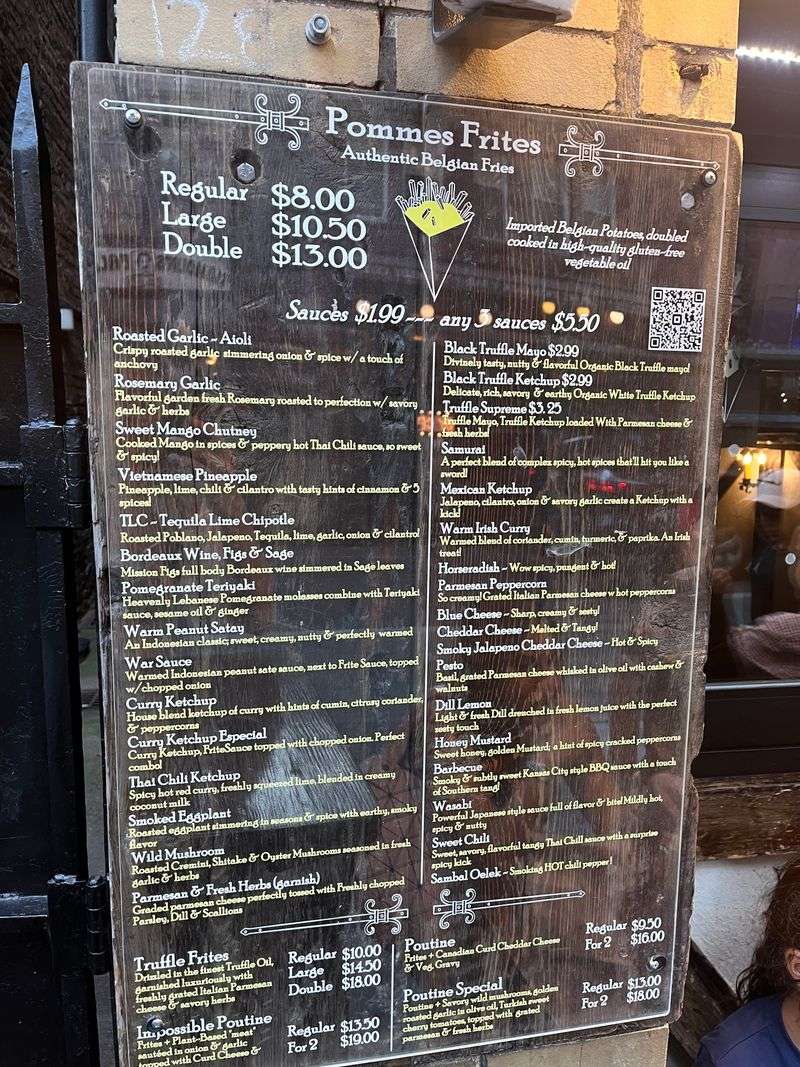 Pommes Frites
Authentic Belgian Fries
Regular $8.00
Large $10.50
Double $13.00
Imported Belgian Potatoes, doubled
cooked in high-quality gluten-free
vegetable oil
Sauces $1.99 --- any 3 sauces $5.50
Roasted Garlic - Aioli
Crispy roasted garlic simmering onion & spice w/ a touch of
anchovy
Rosemary Garlic
Flavorful garden fresh Rosemary roasted to perfection w/ savory
garlic & herbs
Sweet Mango Chutney
Cooked Mango in spices & peppery hot Thai Chili sauce, so sweet
& spicy!
Vietnamese Pineapple
Pineapple, lime, chili & cilantro with tasty hints of cinnamon & 5
spices!
TLC - Tequila Lime Chipotle
Roasted Poblano, Jalapeno, Tequila, lime, garlic, onion & cilantro
Bordeaux Wine, Figs & Sage
Mission Figs full body Bordeaux wine simmered in Sage leaves
Pomegranate Teriyaki
Heavenly Lebanese Pomegranate molasses combine with Teriyaki
sauce, sesame oil & ginger
Warm Peanut Satay
An Indonesian classic; sweet, creamy, nutty & perfectly warmed
War Sauce
Warmed Indonesian peanut sate sauce, next to Frite Sauce, topped
w/chopped onion
Curry Ketchup
House blend ketchup of curry with hints of cumin, citrusy coriander,
& peppercorns
Curry Ketchup Especial
Curry Ketchup, FriteSauce topped with chopped onion. Perfect
combo!
Thai Chili Ketchup
Spicy hot red curry, freshly squeezed lime, blended in creamy
coconut milk
Smoked Eggplant
Roasted eggplant simmering in seasons & spice with earthy, smoky
flavor
Wild Mushroom
Roasted Cremini, Shitake & Oyster Mushrooms seasoned in fresh
garlic & herbs
Parmesan & Fresh Herbs (garnish)
Graded parmesan cheese perfectly tossed with Freshly chopped
Parsley, Dill & Scallions
Black Truffle Mayo $2.99
Divinely tasty, nutty & flavorful Organic Black Truffle mayo!
Black Truffle Ketchup $2.99
Delicate, rich, savory & earthy Organic White Truffle Ketchup
Truffle Supreme $3.25
Truffle Mayo, Truffle Ketchup loaded With Parmesan cheese &
fresh herbs!
Samurai
A perfect blend of complex spicy, hot spices that'll hit you like a
sword!
Mexican Ketchup
Jalapeno, cilantro, onion & savory garlic create a Ketchup with a
kick!
Warm Irish Curry
Warmed blend of coriander, cumin, turmeric, & paprika. An Irish
treat!
Horseradish - Wow spicy, pungent & hot!
Parmesan Peppercorn
So creamy! Grated Italian Parmesan cheese w hot peppercorns
Blue Cheese - Sharp, creamy & zesty!
Cheddar Cheese - Malted & Tangy!
Smoky Jalapeno Cheddar Cheese - Hot & Spicy
Pesto
Basil, grated Parmesan cheese whisked in olive oil with cashew &
walnuts
Dill Lemon
Light & fresh Dill drenched in fresh lemon juice with the perfect
zesty touch
Honey Mustard
Sweet honey, golden Mustard; a hint of spicy cracked peppercorns
Barbecue
Smoky & subtly sweet Kansas City style BBQ sauce with a touch
of Southern tang!
Wasabi
Powerful Japanese style sauce full of flavor & bite! Mildly hot,
spicy & nutty
Sweet Chili
Sweet, savory, flavorful tangy Thai Chili sauce with a surprise
spicy kick
Sambal Oelek - Smoking HOT chili pepper!
Truffle Frites
Drizled in the finest Truffle Oil,
garnished luxuriously with
freshly grated Italian Parmesan
cheese & savory herbs
Regular $10.00
Large $14.50
Double $18.00
Impossible Poutine
Frites + Plant-Based "meat"
sautéed in onion & garlic
topped with Curd Cheese &
Regular $13.50
For 2 $19.00
Poutine
Frites + Canadian Curd Cheddar Cheese
& Veg. Gravy
Regular $9.50
For 2 $16.00
Poutine Special
Poutine + Savory wild mushrooms, golden
roasted garlic in olive oil, Turkish sweet
cherry tomatoes, topped with grated
parmesan & fresh herbs
Regular $13.00
For 2 $18.00